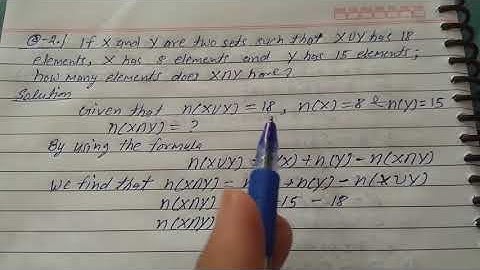 Q-2.) If X and Y are two sets such that X∪Y has 18
elements, X has 8 elements and Y has 15 elements;
how many elements does X∩Y have?
Solution
Given that n(X∪Y) = 18, n(X) = 8 & n(Y) = 15
n(X∩Y) = ?
By using the formula
n(X∪Y) = (X) + n(Y) - n(X∩Y)
We find that n(X∩Y) = n + n(Y) - n(X∪Y)
n(X∩Y) 15 - 18
n(X∩Y)